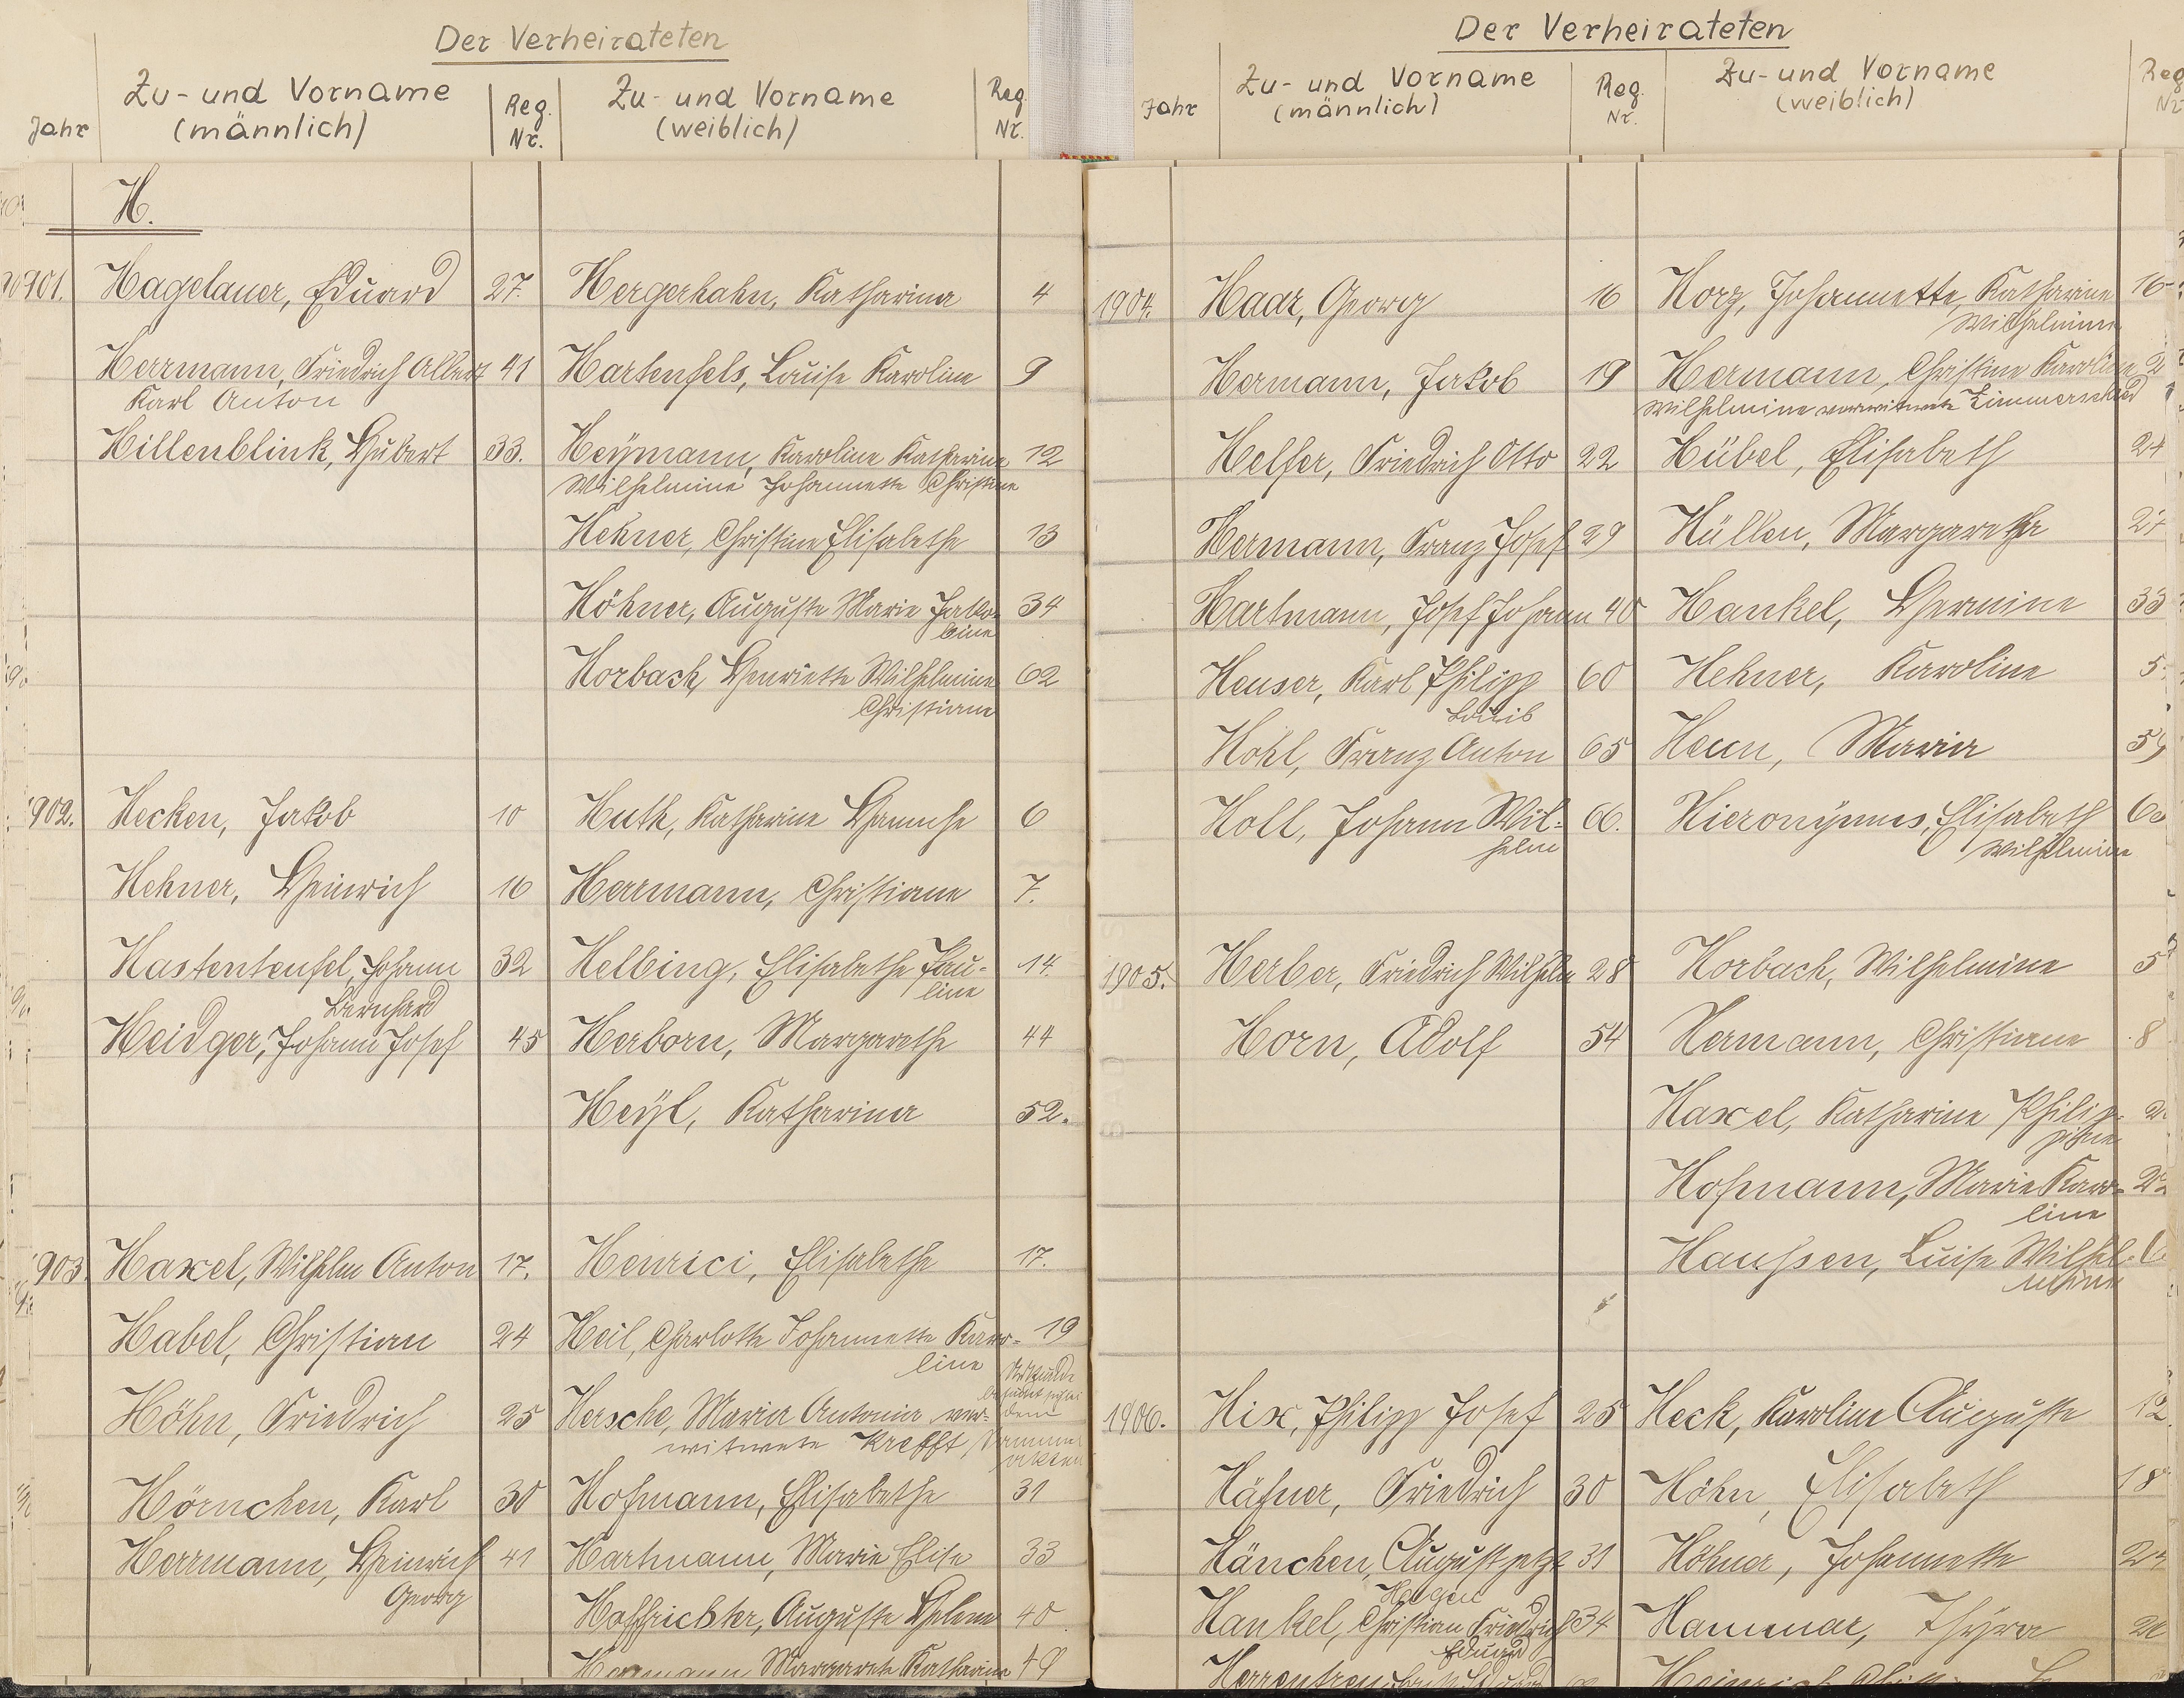 Der Verheirateten
Jahr
Zu- und Vorname
(männlich)
Reg.
Nr.
Zu- und Vorname
(weiblich)
Reg.
Nr.
H.
1901. Hagelauer, Eduard 27. Hergerhahn, Katharina 4
Herrmann, Friedrich Albert 41 Hartenfels, Louise Karoline 9
Karl Anton
Hillenblink, Hubert 33. Heÿmann, Karoline Katharine 12
Wilhelmine Johannette Christine
Hehner, Christine Elisabethe 13
Höhner, Auguste Marie Jako- 34
bine
Horbach, Henriette Wilhelmine 62
Christiane
1902. Hecken, Jakob 10 Huth, Katharine 6
Hehner, Heinrich 16 Herrmann, Christiane 7.
Hastenteufel, Johann 32 Helbing, Elisabethe Pau- 14
Bernhard line
Heidger, Johann Josef 45 Herborn, Margarethe 44
Heÿl, Katharina 52.
1903. Haxel, Wilhelm Anton 17. Henrici, Elisabethe 17.
Habel, Christian 24 Heil, Charlotte Johannette Karo- 19
line
Höhn, Friedrich 25 Hersche, Maria Antonia ver-
witwete Krefft
Hörnchen, Karl 30 Hofmann, Elisabethe 31
Herrmann, Heinrich 41 Hartmann, Marie Elise 33
Georg
Hoffrichter, Auguste Helene 40
Margarete Katharine 49
Der Verheirateten
Jahr
Zu- und Vorname
(männlich)
Reg.
Nr.
Zu- und Vorname
(weiblich)
Reg
Nr
1904. Haar, Georg 16 Horz, Johannette Katharine 16
Wilhelmine
Hermann, Jakob 19 Hermann, Christine Karoline 2
Wilhelmine verwitwete Zimmerschied
Helfer, Friedrich Otto 22 Hübel, Elisabeth 24
Hermann, Franz Josef 29 Hüllen, Margaretha 27
Hartmann, Josef Johann 40 Hankel, Hermine 33
Heuser, Karl Philipp 60 Hehner, Karoline 5
Louis
Hohl, Franz Anton 65 Henn, Maria 59
Holl, Johann Wil- 66. Hieronÿmus, Elisabeth 60
helm Wilhelmine
1905. Herber, Friedrich Wilhelm 28 Horbach, Wilhelmine 5
Horn, Adolf 54 Hermann, Christiane 8
Haxel, Katharine Philip- 2
pine
Hofmann, Marie Karo- 22
line
Haußen, Luise Wilhel-
mine
1906. Hix, Philipp Josef 25 Heck, Karoline Auguste 12.
Häfner, Friedrich 30 Höhn, Elisabeth 18
Hänchen, August jetzt 31 Höhner, Johannette 2
Hagen
Hankel, Christian Friedrich 34 Hammar, Thÿra 2
Eduard
Heinrich